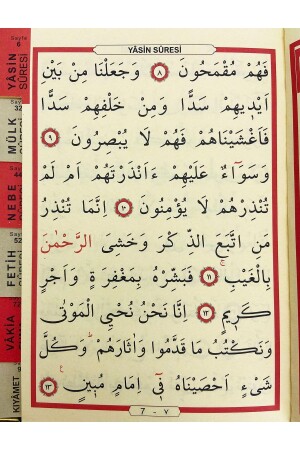 YÂSİN SÛRESİ
فَهُمْ مُقْمَحُونَ ﴿٨﴾ وَجَعَلْنَا مِنْ بَيْنِ
اَيْدِيهِمْ سَدًّا وَمِنْ خَلْفِهِمْ سَدًّا
فَاَغْشَيْنَاهُمْ فَهُمْ لَا يُبْصِرُونَ ﴿٩﴾
وَسَوَٓاءٌ عَلَيْهِمْ ءَاَنْذَرْتَهُمْ اَمْ لَمْ
تُنْذِرْهُمْ لَا يُؤْمِنُونَ ﴿١٠﴾ اِنَّمَا تُنْذِرُ
مَنِ اتَّبَعَ الذِّكْرَ وَخَشِىَ الرَّحْمٰنَ
بِالْغَيْبِ ﴿١١﴾ فَبَشِّرْهُ بِمَغْفِرَةٍ وَاَجْرٍ
كَرِيمٍ ﴿١٢﴾ اِنَّا نَحْنُ نُحْيِى الْمَوْتٰى
وَنَكْتُبُ مَا قَدَّمُوا وَاٰثَارَهُمْ وَكُلَّ
شَىْءٍ اَحْصَيْنَاهُ فٓى اِمَامٍ مُبِينٍ ﴿١٣﴾
7 - ٧
Sayfa
6
YÂSİN
SÛRESİ
Sayfa
32
MÜLK
44
NEBE
Sayfa
52
FETİH
VÂKIA
KIYÂMET